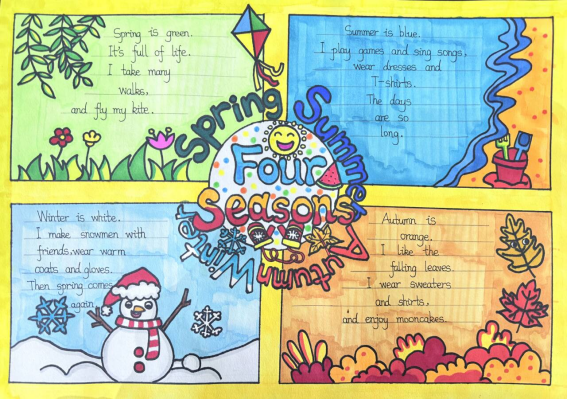 Spring is green.
It's full of life.
I take many
walks,
and fly my kite.
Summer is blue.
I play games and sing songs,
wear dresses and
T-shirts.
The days
are so
long.
Spring
Summer
Four
Seasons
Winter
Autumn
Winter is white.
I make snowmen with
friends, wear warm
coats and gloves.
Then spring comes
again.
Autumn is
orange.
I like the
falling leaves.
I wear sweaters
and shirts,
and enjoy mooncakes.